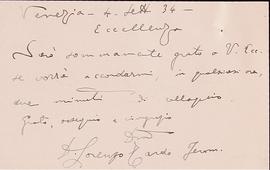 Venezia - 4 - Sett 34 -
Eccellenza
Sarò sommamente grato a V. Ecc.
se vorrà accordarmi, in qualsiasi ora,
due minuti di colloquio.
Grato, ossequio e
D. Lorenzo Tardo Jerom.